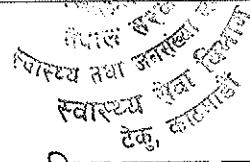 नेपाल सरकार
स्वास्थ्य तथा जनसंख्या
स्वास्थ्य सेवा विभाग
टेकु, काठमाडौं